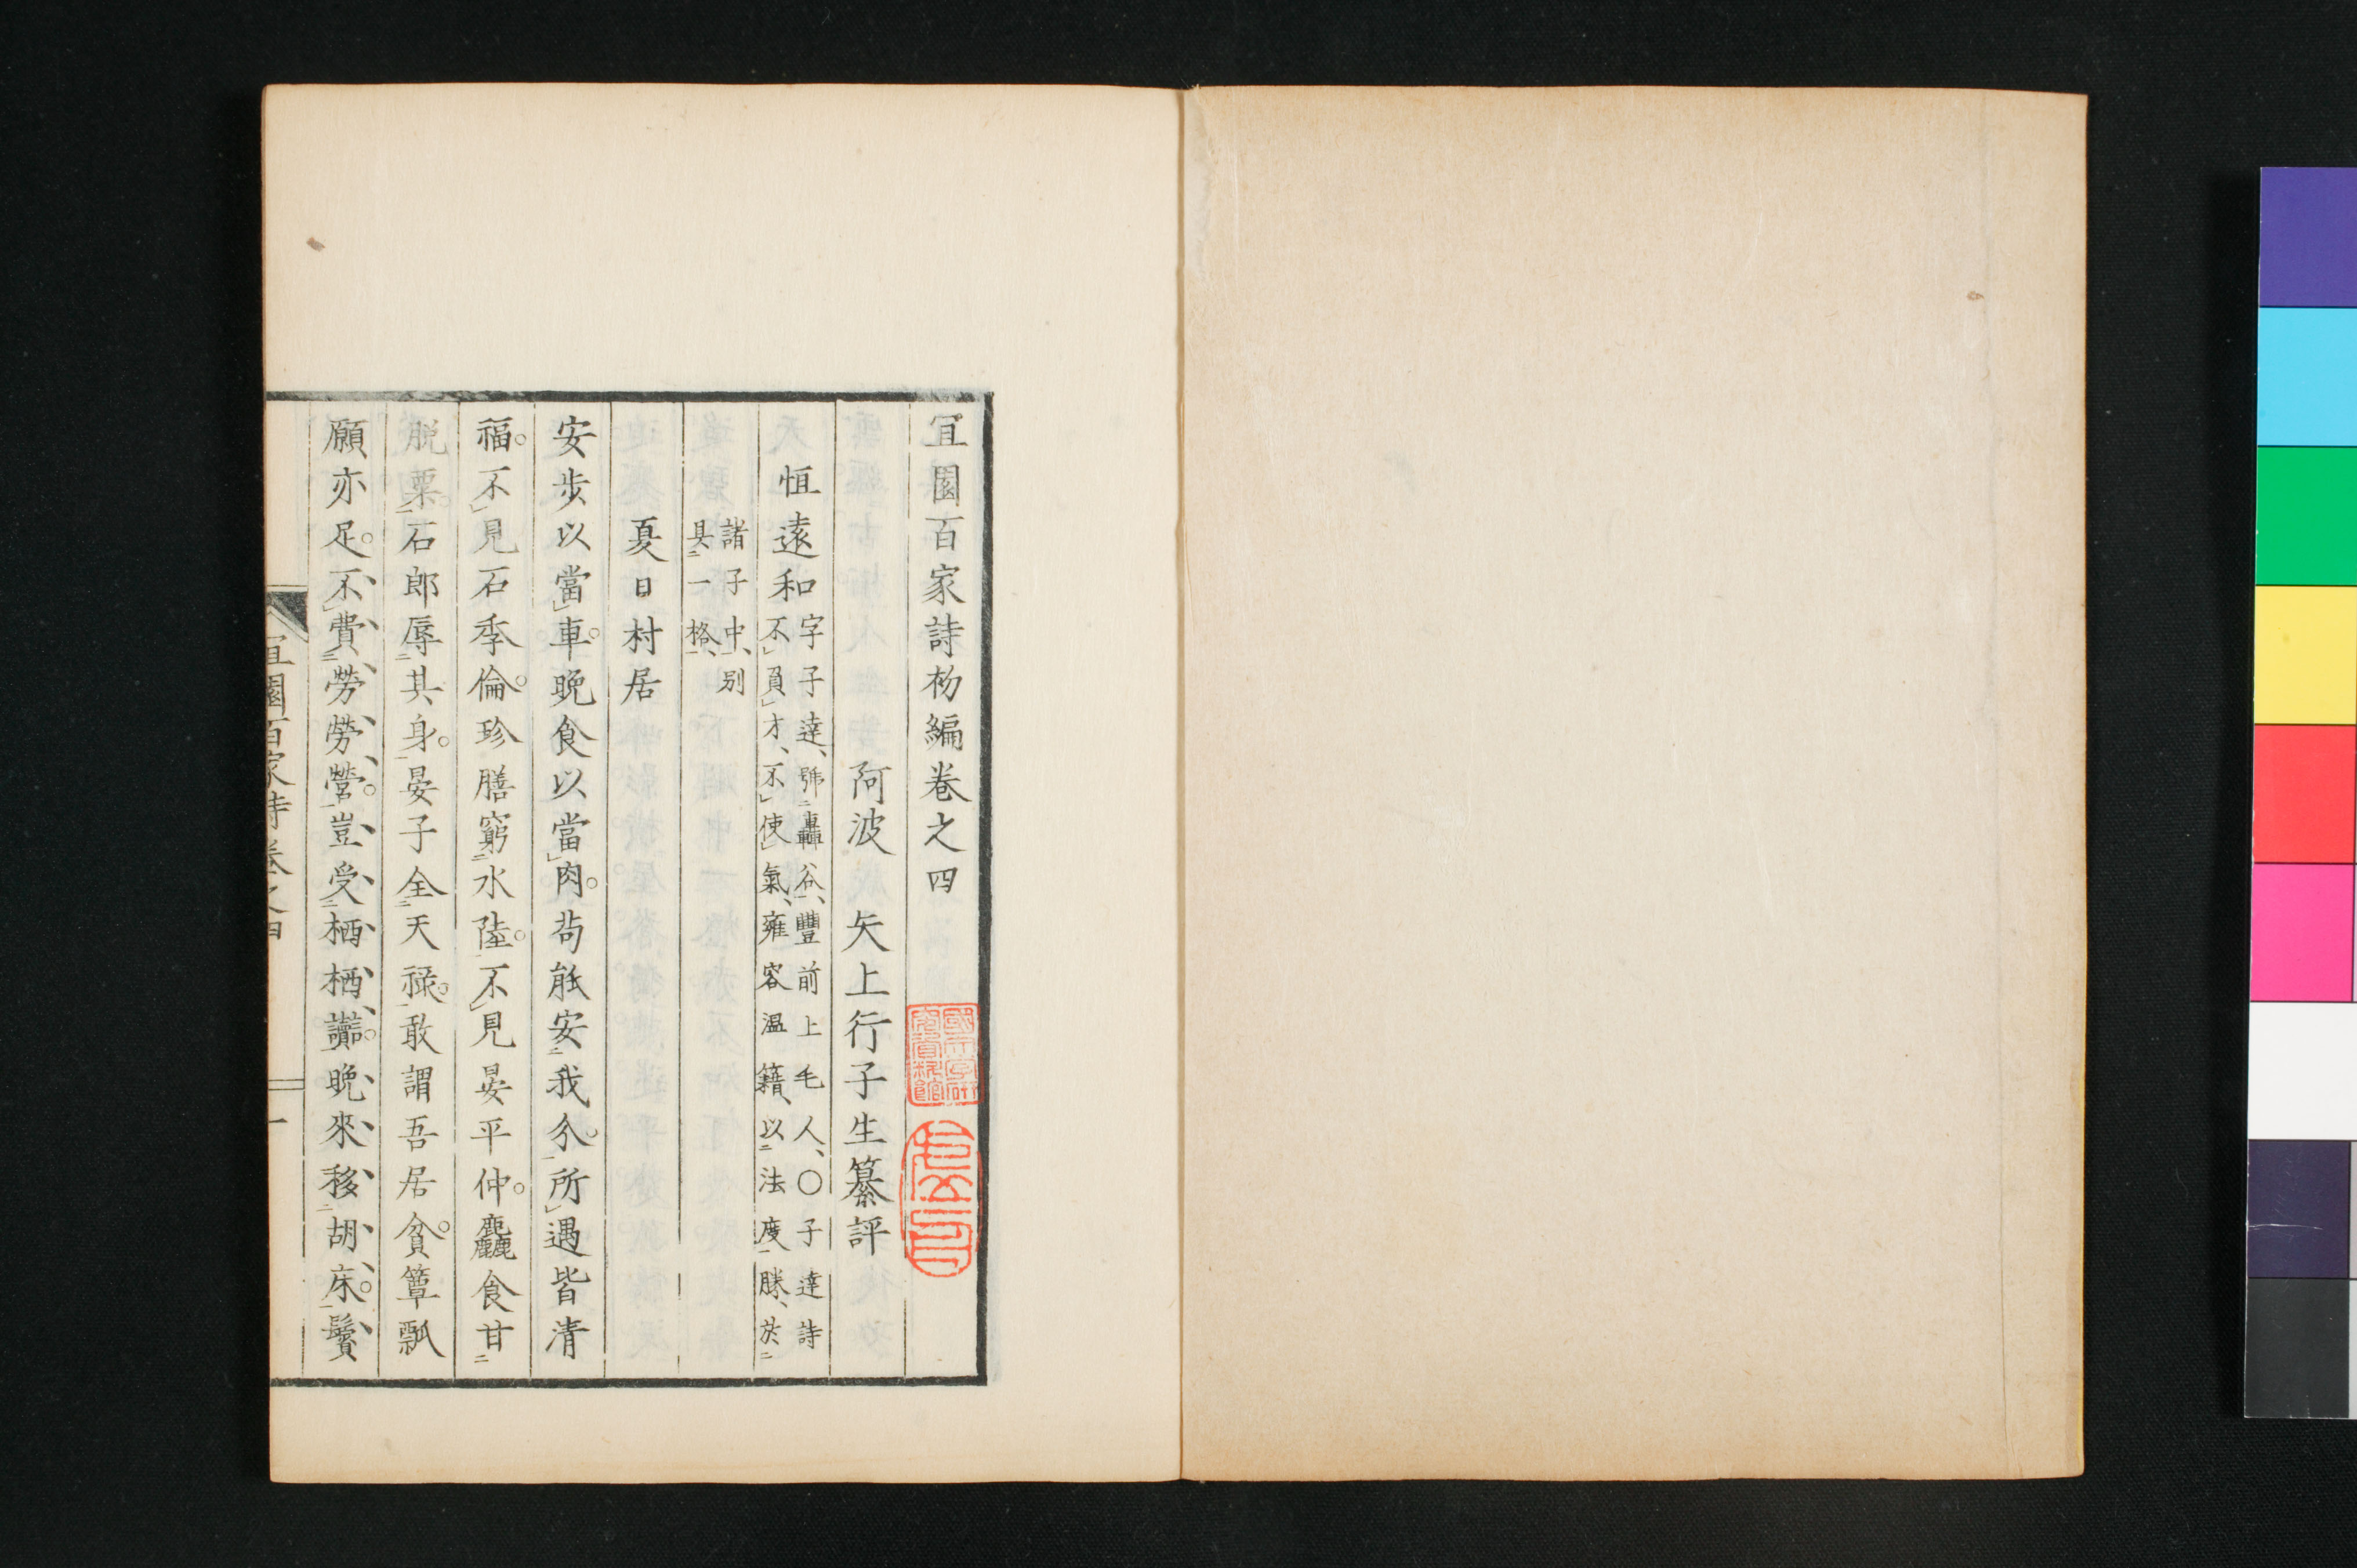 宜園百家詩初編卷之四
阿波 矢上行子生纂評
恒遠和 字子達、號轟谷、豐前上毛人、○子達詩
不負才、不使氣、雍容温籍、以法度勝、於
諸子中、別
具一格、
夏日村居
安步以當車。晚食以當肉。苟能安我分。所遇皆清
福。不見石季倫。珍膳窮水陸。不見晏平仲。麤食甘
脱粟。石郎辱其身。晏子全天禄。敢謂吾居貧。簞瓢
願亦足。不費勞勞營。豈受栖栖讟。晚來移胡床。鬢
宜園百家詩卷之四 一